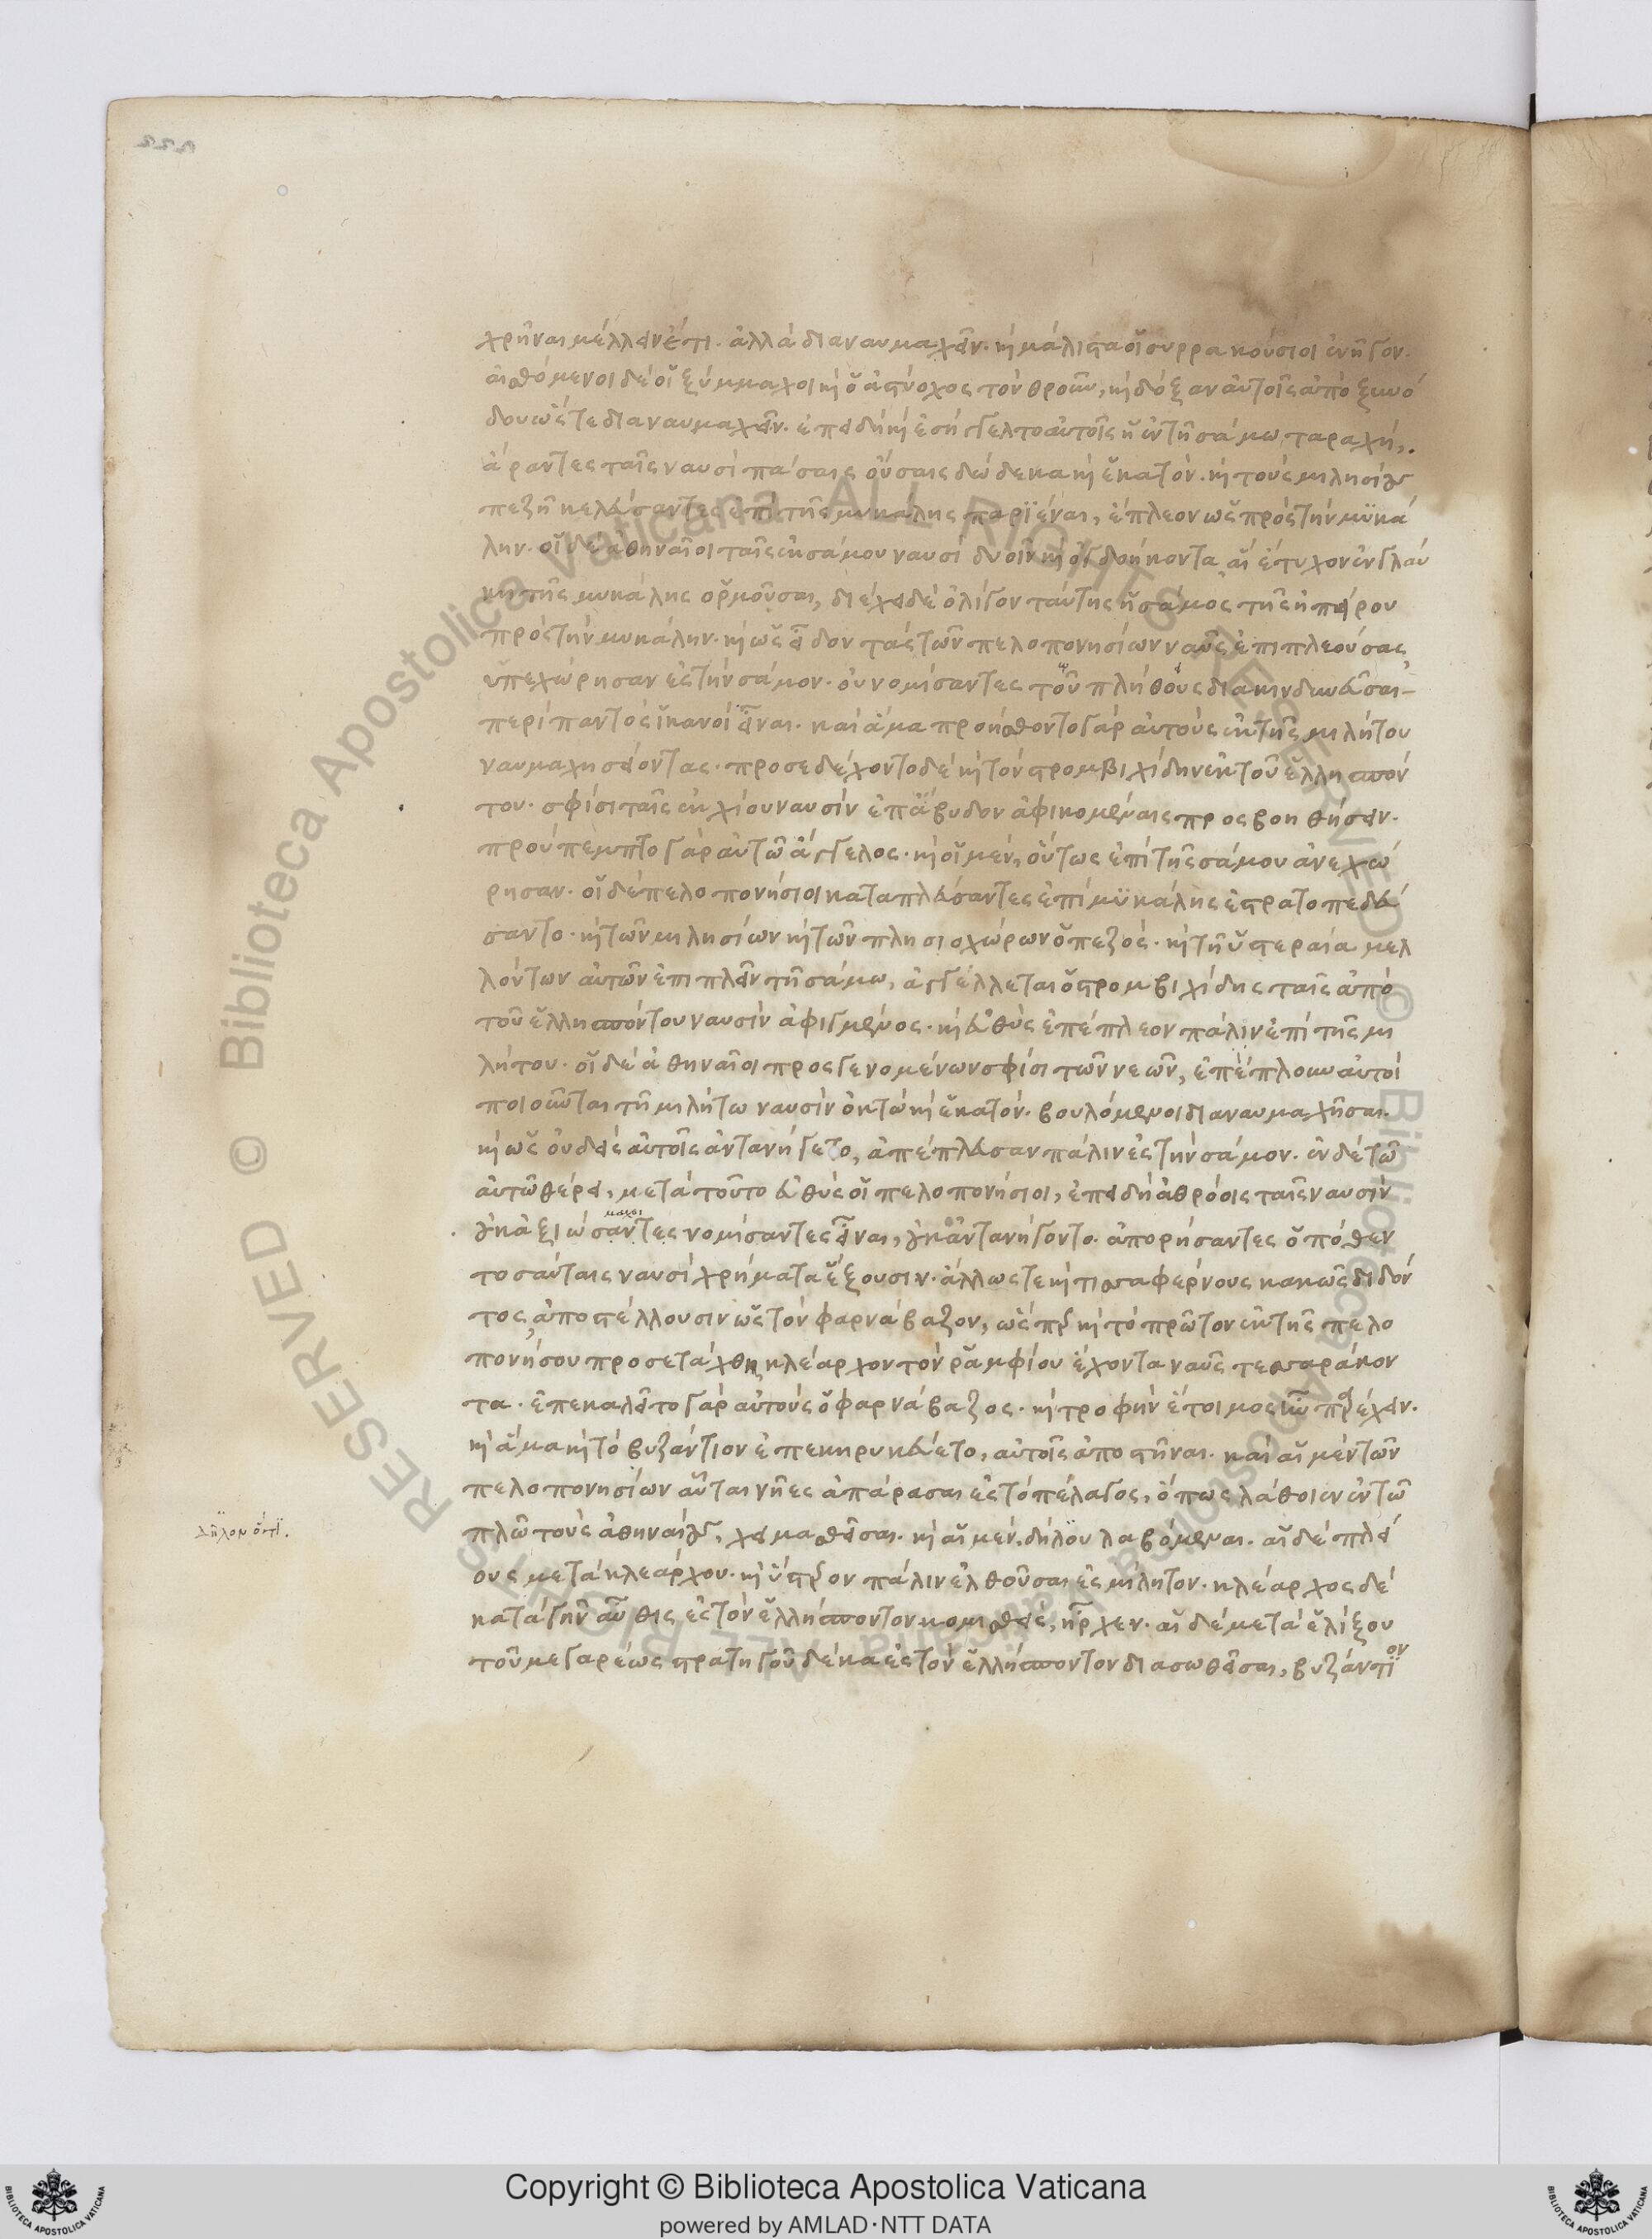 χρῆναι μέλλειν ἔτι. ἀλλὰ διαναυμαχεῖν. κὶ μάλιστα οἱ συρρακούσιοι ἐνῆγον.
αἰσθόμενοι δὲ οἱ ξύμμαχοι κὶ ὁ ἀστύοχος τὸν θροῦν, κὶ δόξαν αὐτοῖς ἀπὸ ξυνό
δου ὥστε διαναυμαχεῖν. ἐπειδὴ κὶ ἐσήγγελτο αὐτοῖς ἡ ἐν τῆ σάμω ταραχή,.
ἄραντες ταῖς ναυσὶ πάσαις οὔσαις δώδεκα κὶ ἑκατόν. κὶ τοὺς μιλησίους
πεζῆ κελεύσαντες ἐπὶ τῆς μυκάλης παρϊέναι, ἔπλεον ὡς πρὸς τὴν μϋκά
λην. οἱ δὲ ἀθηναῖοι ταῖς ἐκ σάμου ναυσὶ δυοῖν κὶ ὀγδοήκοντα, αἳ ἔτυχον ἐν γλαύ
κη τῆς μυκάλης ὁρμοῦσαι, διέχει δὲ ὀλίγον ταύτης ἡ σάμος τῆς ἠπείρου
πρὸς τὴν μυκάλην. κὶ ὡς εἶδον τὰς τῶν πελοπονησίων ναῦς ἐπιπλεούσας,
ὑπεχώρησαν ἐς τὴν σάμον. οὐ νομίσαντες τοῦ πλήθους διακινδυνεῦσαι
περὶ παντὸς ἱκανοὶ εἶναι. καὶ ἅμα προήσθοντο γὰρ αὐτοὺς ἐκ τῆς μιλήτου
ναυμαχησείοντας. προσεδέχοντο δὲ κὶ τὸν στρομβιχίδην ἐκ τοῦ ἑλλησπόν
του. σφίσι ταῖς ἐκ χίου ναυσὶν ἐπ ἄβυδον ἀφικομέναις προσβοηθήσειν.
προύπεμπτο γὰρ αὐτῶ ἄγγελος. κὶ οἱ μὲν, οὕτως ἐπὶ τῆς σάμου ἀνεχώ
ρησαν. οἱ δὲ πελοπονήσιοι καταπλεύσαντες ἐπὶ μϋκάλης ἐστρατοπεδεύ
σαντο. κὶ τῶν μιλησίων κὶ τῶν πλησιοχώρων ὁ πεζός. κὶ τῆ ὑστεραία μελ
λόντων αὐτῶν ἐπιπλεῖν τῆ σάμω, ἀγγέλλεται ὁ στρομβιχίδης ταῖς ἀπὸ
τοῦ ἑλλησπόντου ναυσὶν ἀφιγμένος. κὶ εὐθὺς ἐπέπλεον πάλιν ἐπὶ τῆς μι
λήτου. οἱ δὲ ἀθηναῖοι προσγενομένων σφίσι τῶν νεῶν, ἐπέπλουν αὐτοὶ
ποιοῦνται τῆ μιλήτω ναυσὶν ὀκτὼ κὶ ἑκατόν. βουλόμενοι διαναυμαχῆσαι.
κὶ ὡς οὐδεὶς αὐτοῖς ἀντανήγετο, ἀπέπλευσαν πάλιν ἐς τὴν σάμον. ἐν δὲ τῶ
αὐτῶ θέρει, μετὰ τοῦτο εὐθὺς οἱ πελοπονήσιοι, ἐπειδὴ ἀθρόοις ταῖς ναυσὶν
οὐκ ἀξιώσαντες νομίσαντες εἶναι, οὐκ ἀντανήγοντο. ἀπορήσαντες ὁπόθεν
τοσαύταις ναυσὶ χρήματα ἕξουσιν. ἄλλως τε κὶ τισσαφέρνους κακῶς διδόν
τος, ἀποστέλλουσιν ὡς τὸν φαρνάβαζον, ὥσπερ κὶ τὸ πρῶτον ἐκ τῆς πελο
πονήσου προσετάχθη, κλέαρχον τὸν ῥαμφίου ἔχοντα ναῦς τεσσαράκον
τα. ἐπεκαλεῖτο γὰρ αὐτοὺς ὁ φαρνάβαζος. κὶ τροφὴν ἕτοιμος ἦν παρέχειν.
κὶ ἅμα κὶ τὸ βυζάντιον ἐπεκηρυκεύετο, αὐτοῖς ἀποστῆναι. καὶ αἱ μὲν τῶν
πελοπονησίων αὗται νῆες ἀπάρασαι ἐς τὸ πέλαγος, ὅπως λάθοιεν ἐν τῶ
πλῶ τοὺς ἀθηναίους, χειμασθεῖσαι. κὶ αἱ μὲν. δήλου λαβόμεναι. αἱ δὲ πλεί
δῆλον ὅτι.
ους μετὰ κλεάρχου. κὶ ὕστερον πάλιν ἐλθοῦσαι ἐς μίλητον. κλέαρχος δὲ
κατὰ γῆν αὖθις ἐς τὸν ἑλλήσποντον κομισθεὶς, ἦρχεν. αἱ δὲ μετὰ ἑλίξου
τοῦ μεγαρέως στρατηγοῦ δέκα ἐς τὸν ἑλλήσποντον διασωθεῖσαι, βυζάντιον